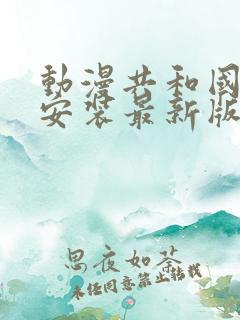 動漫共和國
安裝最新版
思夜如茶
未经同意禁止转载